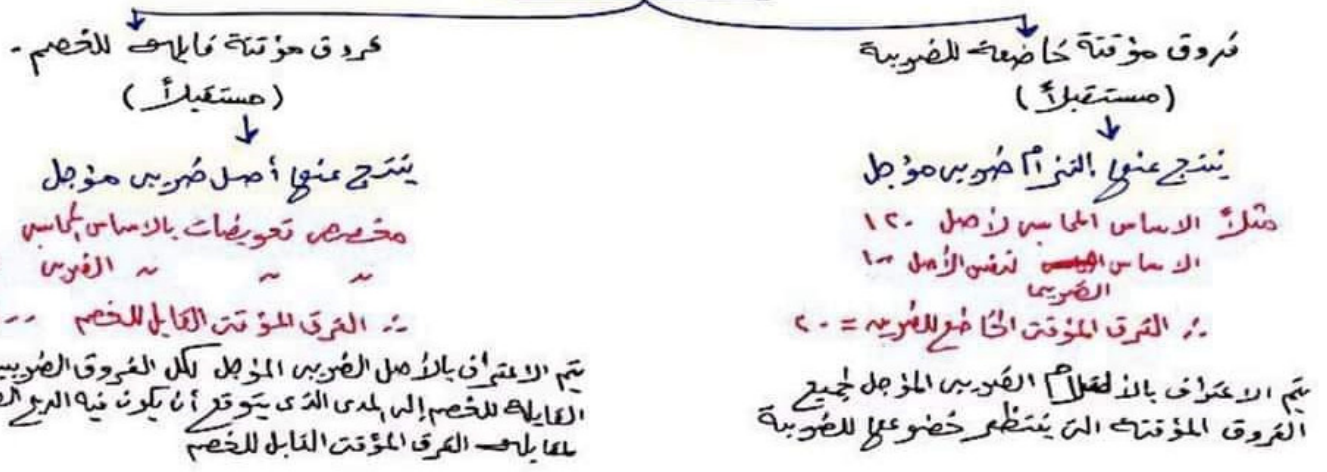 فروق مؤقتة خاضعة للضريبة
(مستقبلاً)
ينتج عنها التزام ضريبى مؤجل
مثلاً الاساس المحاسبى لأصل ١٢٠
الاساس لنفس الأصل ١٠٠
الضريبى
∴ الفرق المؤقت الخاضع للضريبة = ٢٠
يتم الاعتراف بالالتزام الضريبى المؤجل لجميع
الفروق المؤقتة التى يُنتظر خضوعها للضريبة
فروق مؤقتة قابلة للخصم.
(مستقبلاً)
ينتج عنها أصل ضريبى مؤجل
مخصص تعويضات بالاساس المحاسبى
〃 〃 〃 الضريبى
∴ الفرق المؤقت القابل للخصم
يتم الاعتراف بالأصل الضريبى المؤجل لكل الفروق
القابلة للخصم إلى المدى الذى يتوقع أن يكون فيه الربح
الفرق المؤقت القابل للخصم